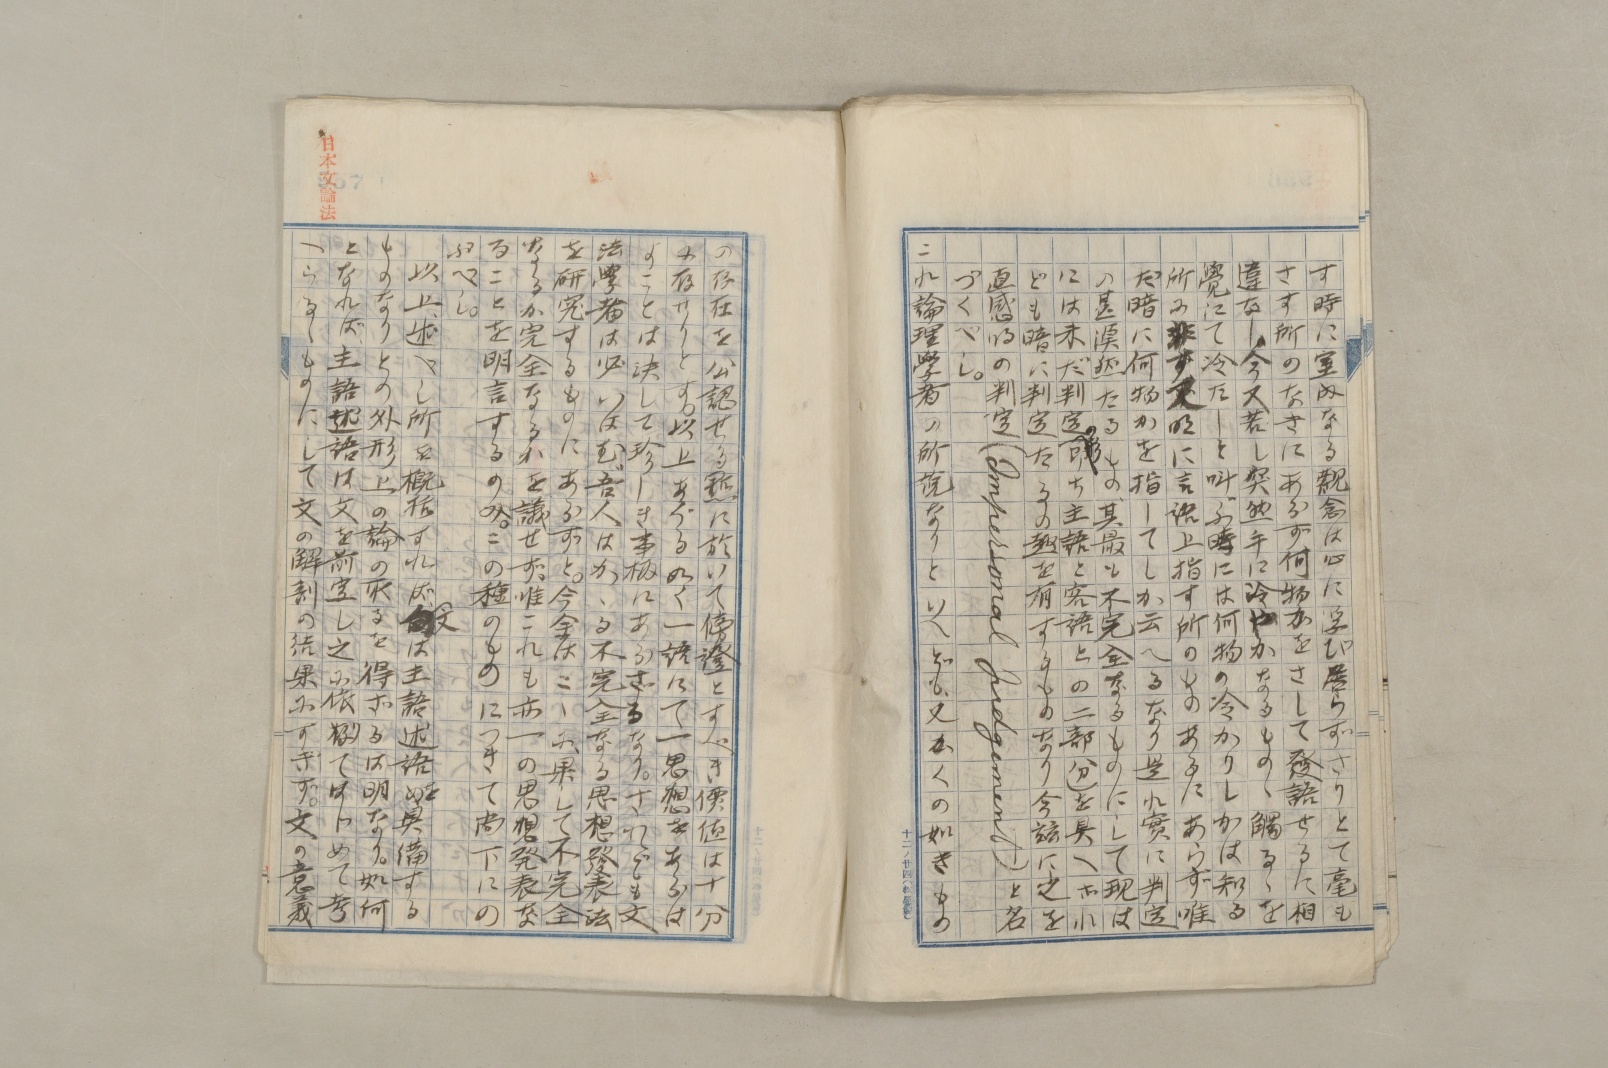 す時に室内なる観念は心に浮び居らずさりとて毫も
さす所のなきにあらず何物かをさして發語せるに相
違なし、今又若し突然手に冷やかなるものゝ觸るゝを
覺にて冷たしと叫ぶ時には何物の冷かりしかは知る
所に非ず又明に言語上指す所のものあるにあらず唯
だ暗に何物かを指してしか云へるなり是れ實に判定
の甚漠然たるもの、其最も不完全なるものにして現は
には未だ判定の形即ち主語と客語との二部分を具へざれ
ども暗に判定たるの趣を有するものなり今茲に之を
直感的の判定(Impersonal judgement)と名
づくべし。
これ論理學者の所説なりといへども、又かくの如きもの
日本文論法
の存在を公認せる點に於いて傍證とすべき價値は十分
に存せりとす。以上あぐる如く一語にて一思想をあらは
すことは決して珍しき事柄にあらざるなり。されども文
法學者は必いはむ吾人はかゝる不完全なる思想發表法
を研究するものにあらずと。今余はこゝに果して不完全
なるか完全なるかを議せず、唯これも亦一の思想発表な
ることを明言するのみ。この種のものにつきて尚下にの
ぶべし。
以上、述べし所を概括すれば文は主語述語を具備する
ものなりとの外形上の論の取るを得ざるは明なり。如何
となれば主語述語は文を前定し之に依據てはじめて考
へらるゝものにして文の解剖の結果にすぎず。文の意義